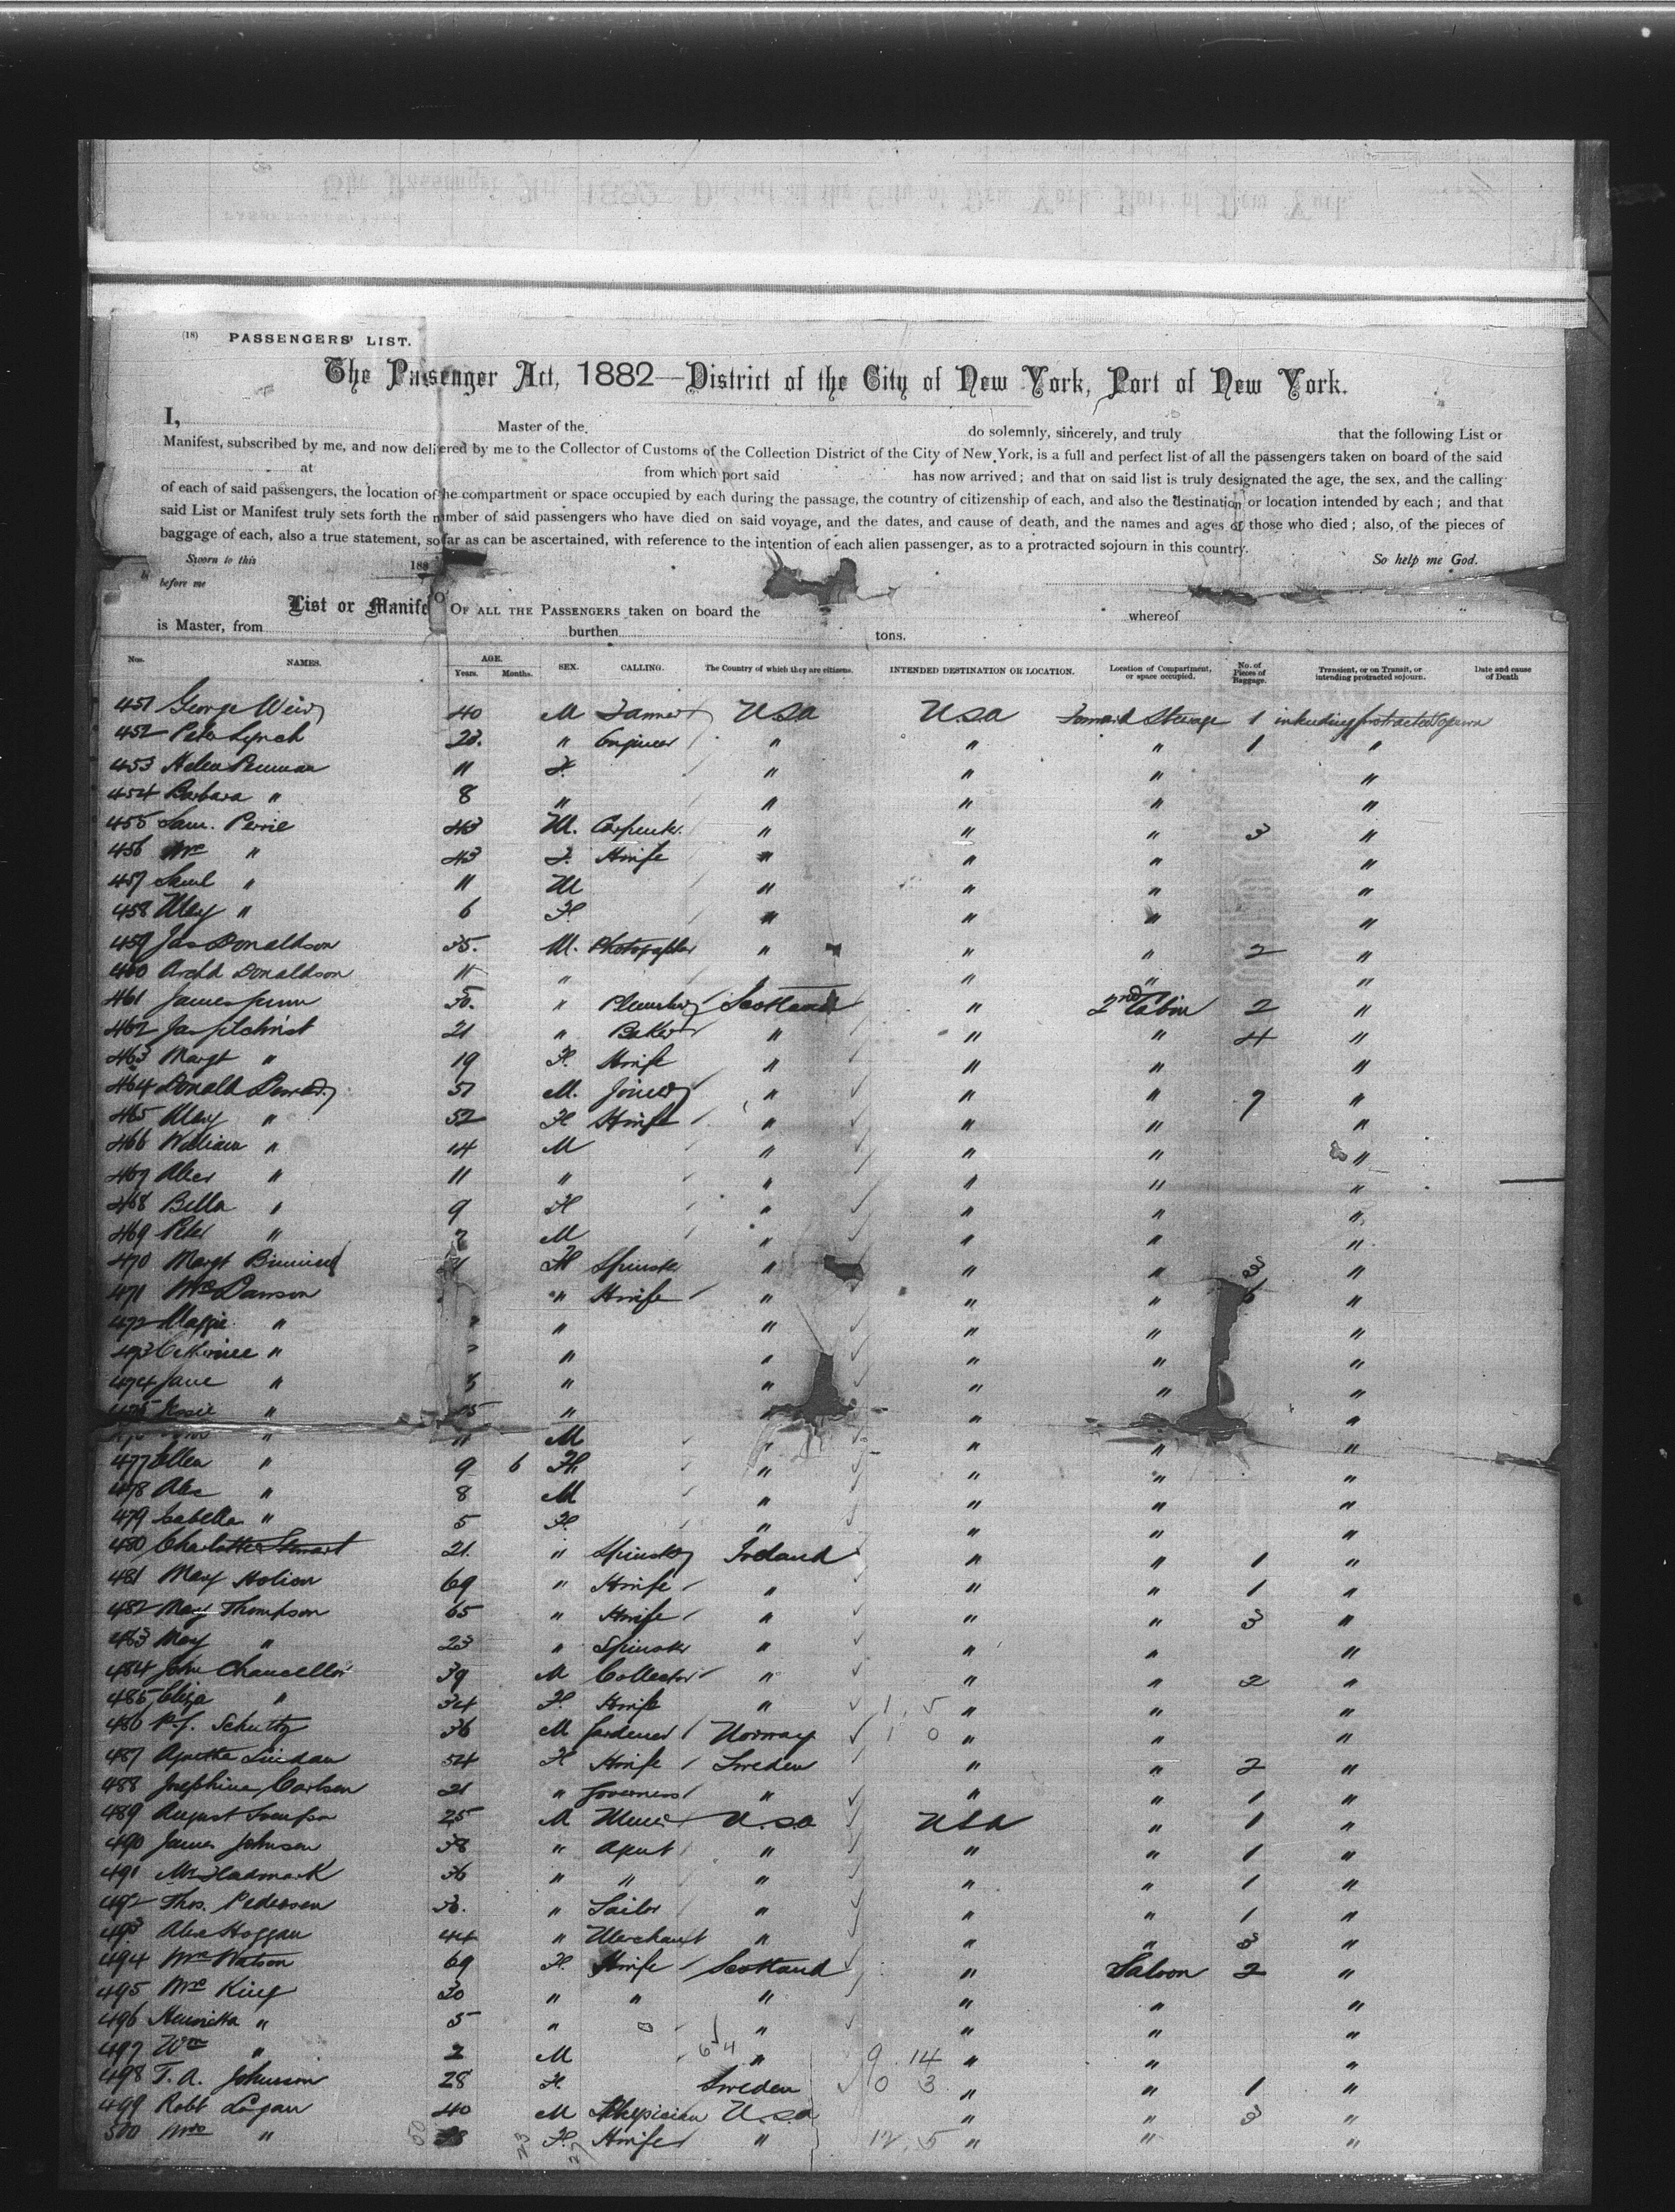 (18) PASSENGERS' LIST.
The Passenger Act, 1882—District of the City of New York, Port of New York.
I, Master of the do solemnly, sincerely, and truly that the following List or
Manifest, subscribed by me, and now delivered by me to the Collector of Customs of the Collection District of the City of New York, is a full and perfect list of all the passengers taken on board of the said
at from which port said has now arrived; and that on said list is truly designated the age, the sex, and the calling
of each of said passengers, the location of he compartment or space occupied by each during the passage, the country of citizenship of each, and also the destination or location intended by each; and that
said List or Manifest truly sets forth the number of said passengers who have died on said voyage, and the dates, and cause of death, and the names and ages of those who died; also, of the pieces of
baggage of each, also a true statement, so far as can be ascertained, with reference to the intention of each alien passenger, as to a protracted sojourn in this country.
Sworn to this 188 So help me God.
before me
List or Manife OF ALL THE PASSENGERS taken on board the whereof
is Master, from burthen tons.
Nos. NAMES. AGE. Years. Months. SEX. CALLING. The Country of which they are citizens. INTENDED DESTINATION OR LOCATION. Location of Compartment, or space occupied. No. of Pieces of Baggage. Transient, or on Transit, or intending protracted sojourn. Date and cause of Death
451 George Weir 40 M U.S.a U.S.a Forward Steerage 1 intending protracted sojourn
452 Peter Lynch 23. " Engineer " " " 1 "
453 Helen Penman 11 F. " " " "
454 Barbara " 8 " " " " "
455 Sam. Perrie 43 M. Carpenter " " " 3 "
456 Mrs " 43 F. Hwife " " " "
457 Saml " 11 M " " " "
458 May " 6 F. " " " "
459 Jas Donaldson 35. M. Photographer " " " 2 "
460 Archd Donaldson 11 " " " " "
461 James 30. " Scotland " 2nd Cabin 2 "
462 Jas Gilchrist 21 " Baker " " " 4 "
463 Margt " 19 F. Hwife " " " "
464 Donald 51 M. Joiner " " " 7 "
465 Mary " 52 F Hwife " " " "
466 William " 14 M " " " "
467 Alex " 11 " " " " "
468 Bella " 9 F " " " "
469 Peter " 7 M " " " "
470 Margt F Spinster " " " 3 "
471 Mrs Dawson " Hwife " " " 6 "
472 Maggie " " " " " "
473 Catherine " " " " " "
474 Jane " " " " " "
475 " " " " "
" 11 M " " " "
477 Ellen " 9 6 F. " " " "
478 Alex " 8 M " " " "
479 Isabella " 5 F. " " " "
480 Charlotte Stewart 21. " Spinster Ireland " " 1 "
481 Mary 69 " Hwife " " " 1 "
482 Mary Thompson 65 " Hwife " " " 3 "
483 May " 23 " Spinster " " " "
484 John Chancellor 39 M Collector " " " 2 "
485 Eliza " 34 F. Hwife " 1.5 " " "
486 P.J. Schultz 36 M Gardener Norway 1 0 " " "
487 Agnetta Lindau 54 F Hwife Sweden " " 2 "
488 Josephine Carlson 21 " Governess " " " 1 "
489 August 25 M Miner U.S.a USA " 1 "
490 James Johnson 38 " Agent " " " 1 "
491 Mr Hadmark 36 " " " " " 1 "
492 Thos. Pedersen 30. " Sailor " " " 1 "
493 Alex Hoggan 44 " Merchant " " " 3 "
494 Mrs Watson 69 F. Hwife Scotland " Saloon 2 "
495 Mrs King 30 " " " " " "
496 Henrietta " 5 " " " " "
497 Wm " 2 M 6 4 " 9 14 " " "
498 T. A. Johnson 28 F. Sweden 0 3 " " 1 "
499 Robt Logan 40 M Physician U.S.a " " 3 "
500 Mrs " F. Hwife " 12.5 " " "